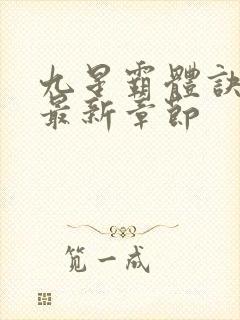 九星霸體訣
最新章節
笕一成